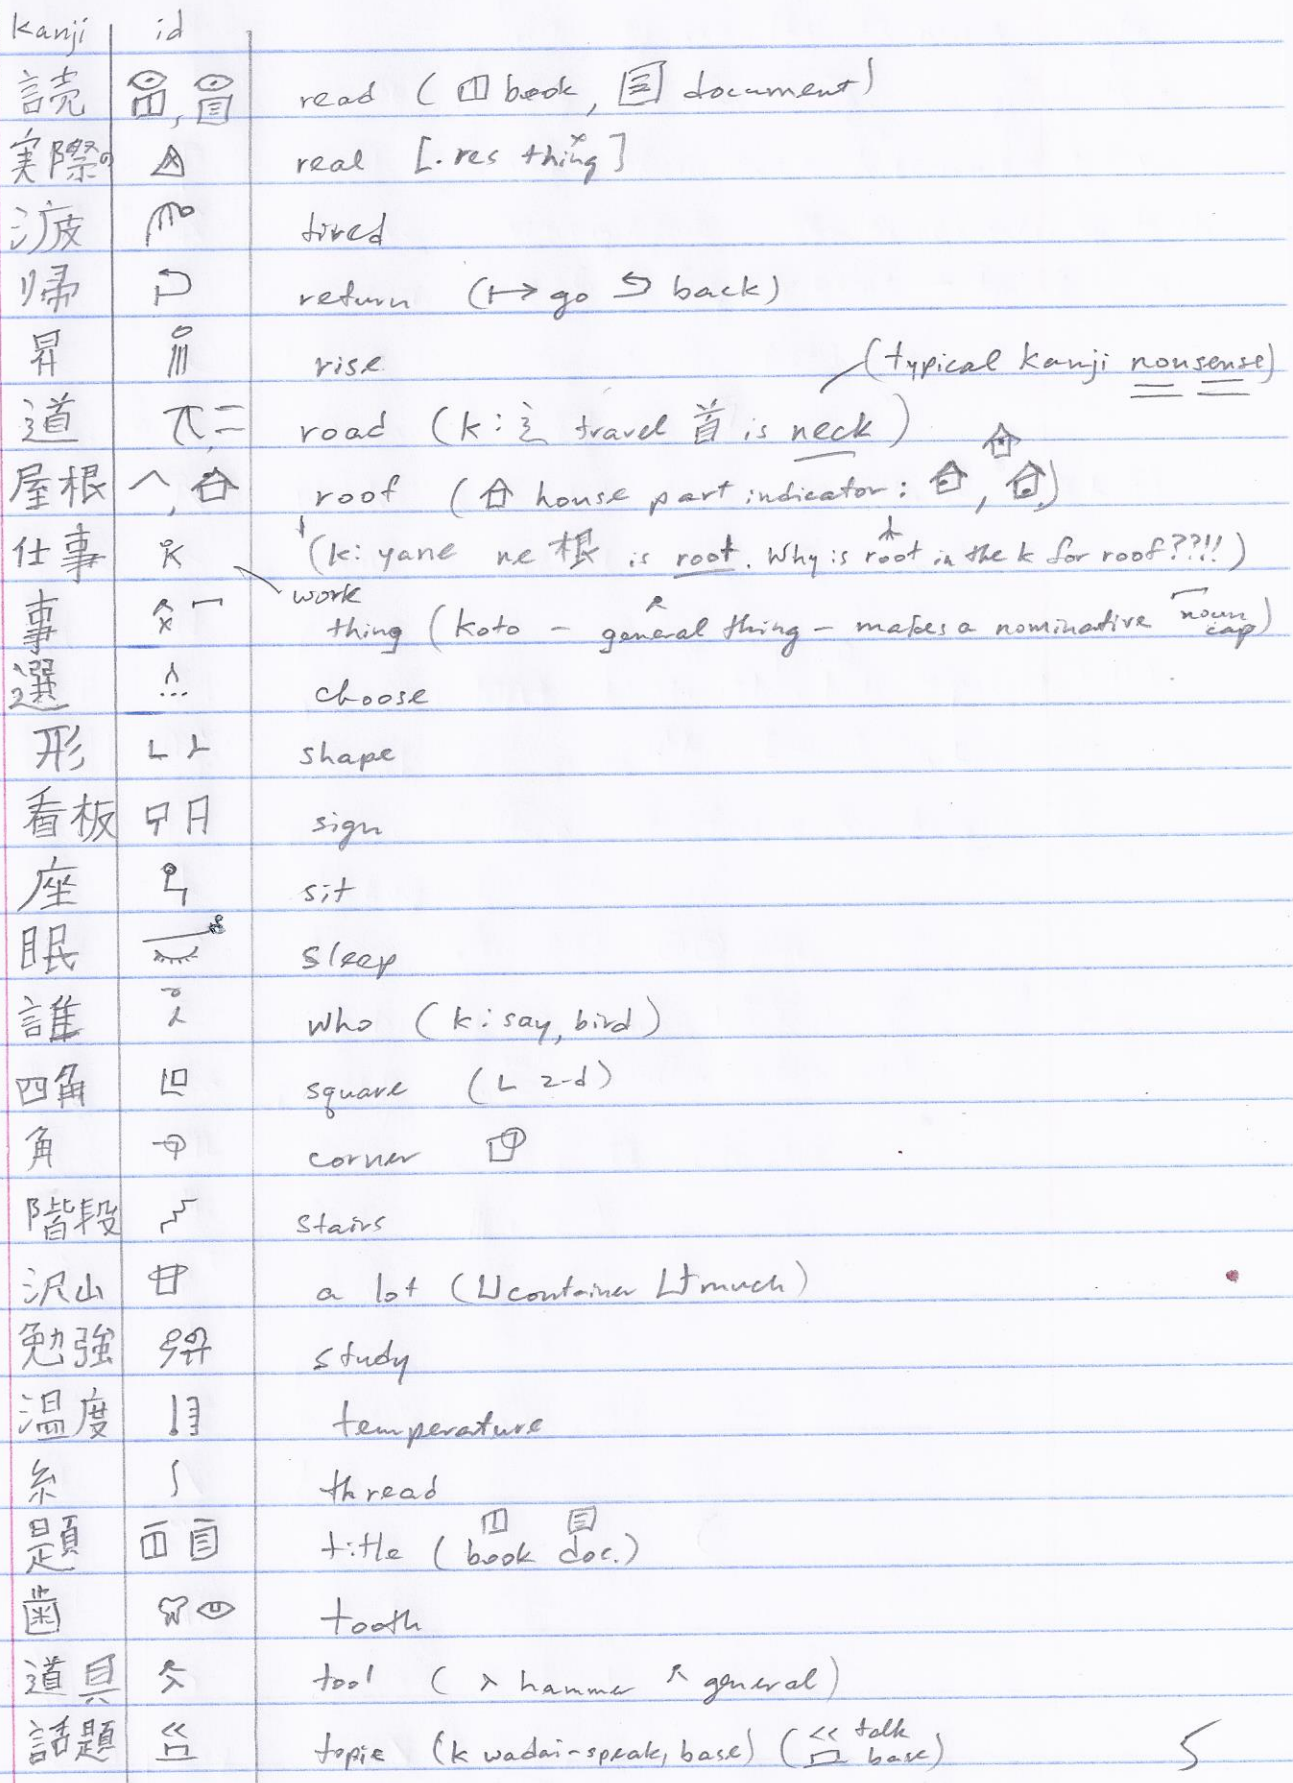 kanji id
読 read (book, document)
実際の real [.res thing]
疲 tired
帰 return (↦ go back)
昇 rise
(typical kanji nonsense)
道 road (k: travel 首 is neck)
屋根 roof (house part indicator: , )
仕事 (k: yane ne 根 is root. Why is root in the k for roof??!!)
work
事 thing (koto - general thing - makes a nominative noun cap)
選 choose
形 shape
看板 sign
座 sit
眠 sleep
誰 who (k: say, bird)
四角 square (L 2-d)
角 corner
階段 stairs
沢山 a lot (container much)
勉強 study
温度 temperature
糸 thread
題 title (book doc.)
歯 tooth
道具 tool (hammer general)
話題 topic (k wadai-speak, base) (<< talk base)
5